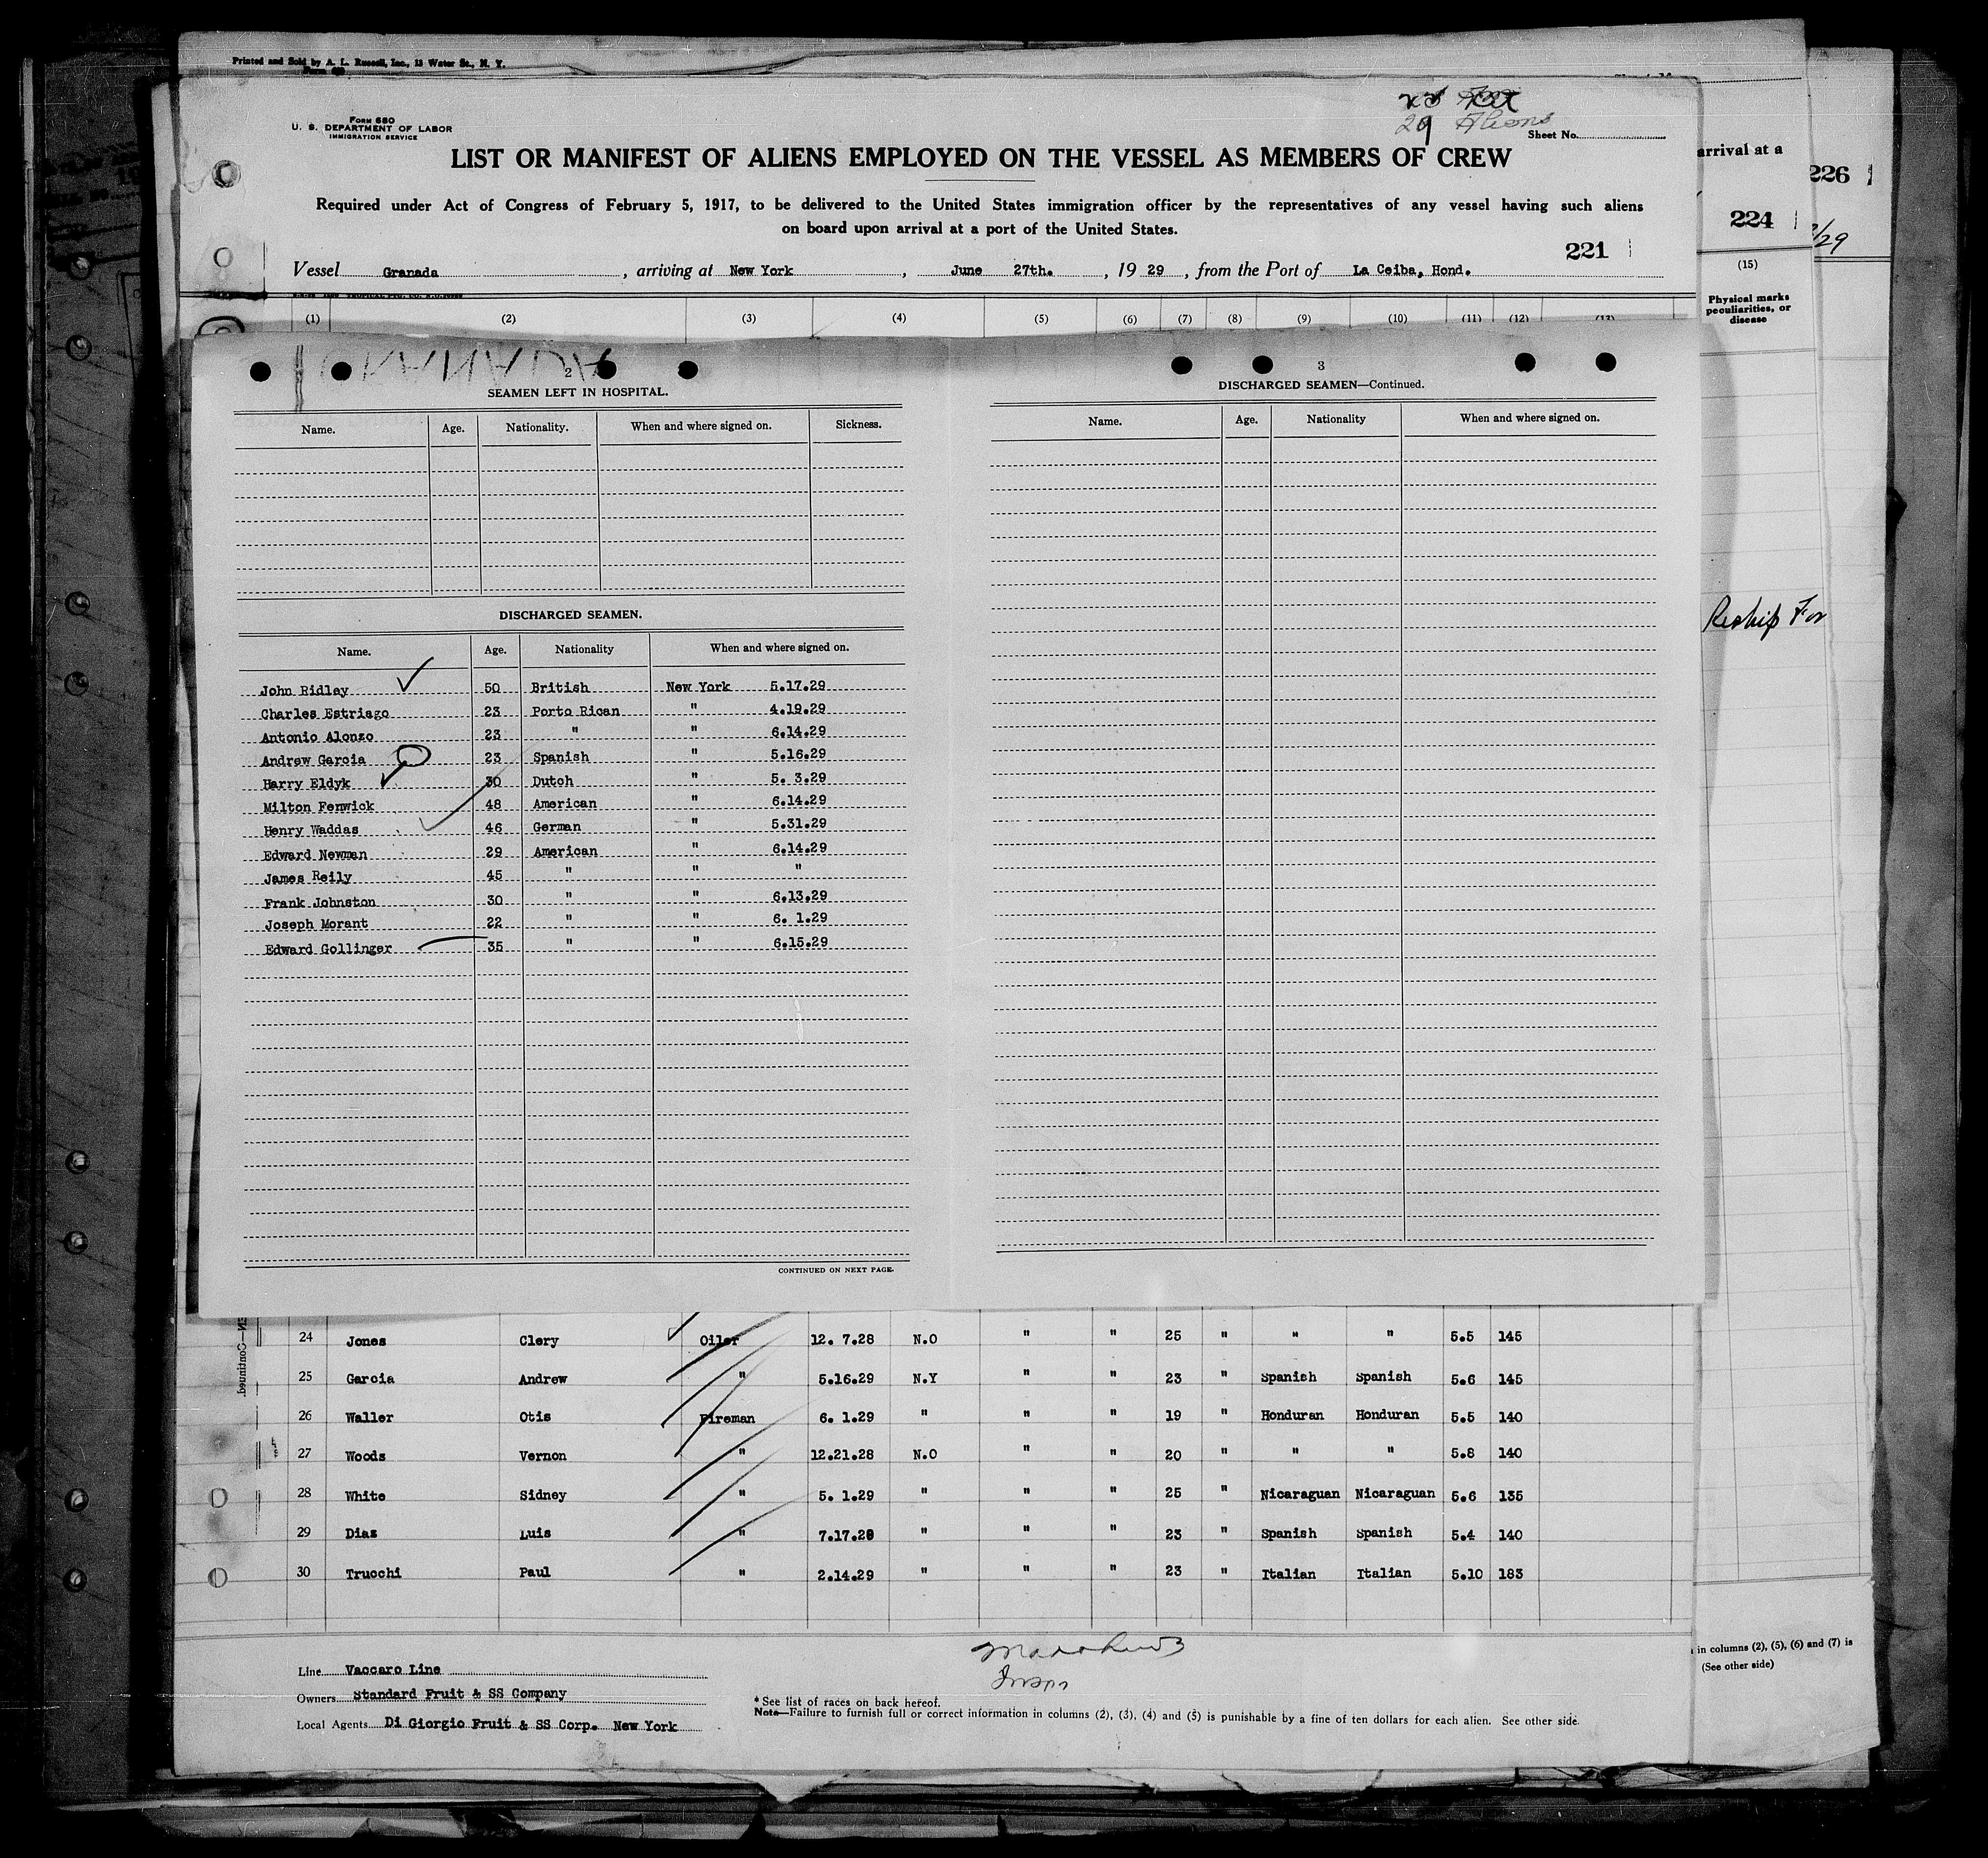 Printed and Sold by A. L. Russell, Inc., 13 Water St., N. Y.
Form 680
U. S. DEPARTMENT OF LABOR
IMMIGRATION SERVICE
29 Aliens
Sheet No.
LIST OR MANIFEST OF ALIENS EMPLOYED ON THE VESSEL AS MEMBERS OF CREW
Required under Act of Congress of February 5, 1917, to be delivered to the United States immigration officer by the representatives of any vessel having such aliens
on board upon arrival at a port of the United States.
221
Vessel Granada, arriving at New York, June 27th., 19 29, from the Port of La Ceiba, Hond.
(1) (2) (3) (4) (5) (6) (7) (8) (9) (10) (11) (12) (13)
arrival at a
224
226
/29
(15)
Physical marks
peculiarities, or
disease
Reship For
GRANADA
2
SEAMEN LEFT IN HOSPITAL.
Name. Age. Nationality. When and where signed on. Sickness.
DISCHARGED SEAMEN.
Name. Age. Nationality When and where signed on.
John Ridley 50 British New York 5.17.29
Charles Estriago 23 Porto Rican " 4.19.29
Antonio Alonzo 23 " " 6.14.29
Andrew Garcia 23 Spanish " 5.16.29
Harry Eldyk 30 Dutch " 5. 3.29
Milton Fenwick 48 American " 6.14.29
Henry Waddas 46 German " 5.31.29
Edward Newman 29 American " 6.14.29
James Reily 45 " " "
Frank Johnston 30 " " 6.13.29
Joseph Morant 22 " " 6. 1.29
Edward Gollinger 35 " " 6.15.29
CONTINUED ON NEXT PAGE.
3
DISCHARGED SEAMEN—Continued.
Name. Age. Nationality When and where signed on.
24 Jones Clery Oiler 12. 7.28 N.O " " 25 " " " 5.5 145
25 Garcia Andrew " 5.16.29 N.Y " " 23 " Spanish Spanish 5.6 145
26 Waller Otis Fireman 6. 1.29 " " " 19 " Honduran Honduran 5.5 140
27 Woods Vernon " 12.21.28 N.O " " 20 " " " 5.8 140
28 White Sidney " 5. 1.29 " " " 25 " Nicaraguan Nicaraguan 5.6 135
29 Diaz Luis " 7.17.28 " " " 23 " Spanish Spanish 5.4 140
30 Trucchi Paul " 2.14.29 " " " 23 " Italian Italian 5.10 183
Line Vaccaro Line
Owners Standard Fruit & SS Company
Local Agents Di Giorgio Fruit & SS Corp. New York
* See list of races on back hereof.
Note—Failure to furnish full or correct information in columns (2), (3), (4) and (5) is punishable by a fine of ten dollars for each alien. See other side.
in columns (2), (5), (6) and (7) is
(See other side)